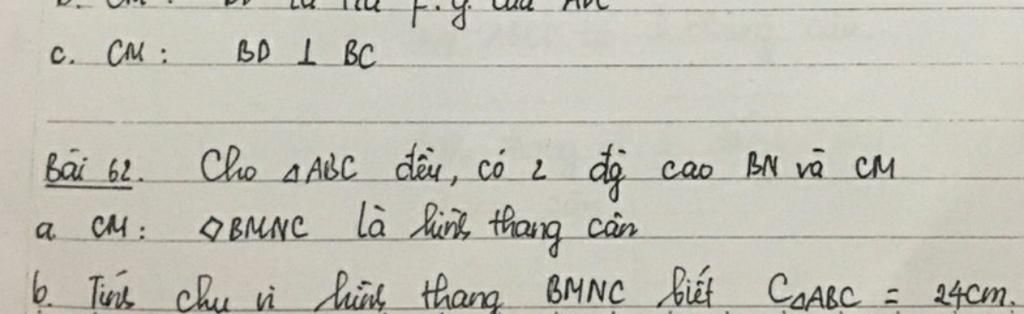 b. CM : BD là tia p.g của ABC
c. CM : BD ⊥ BC
Bài 62. Cho △ABC đều, có 2 đg cao BN và CM
a CM : ◇BMNC là hình thang cân
b. Tính chu vi hình thang BMNC biết C△ABC = 24cm.